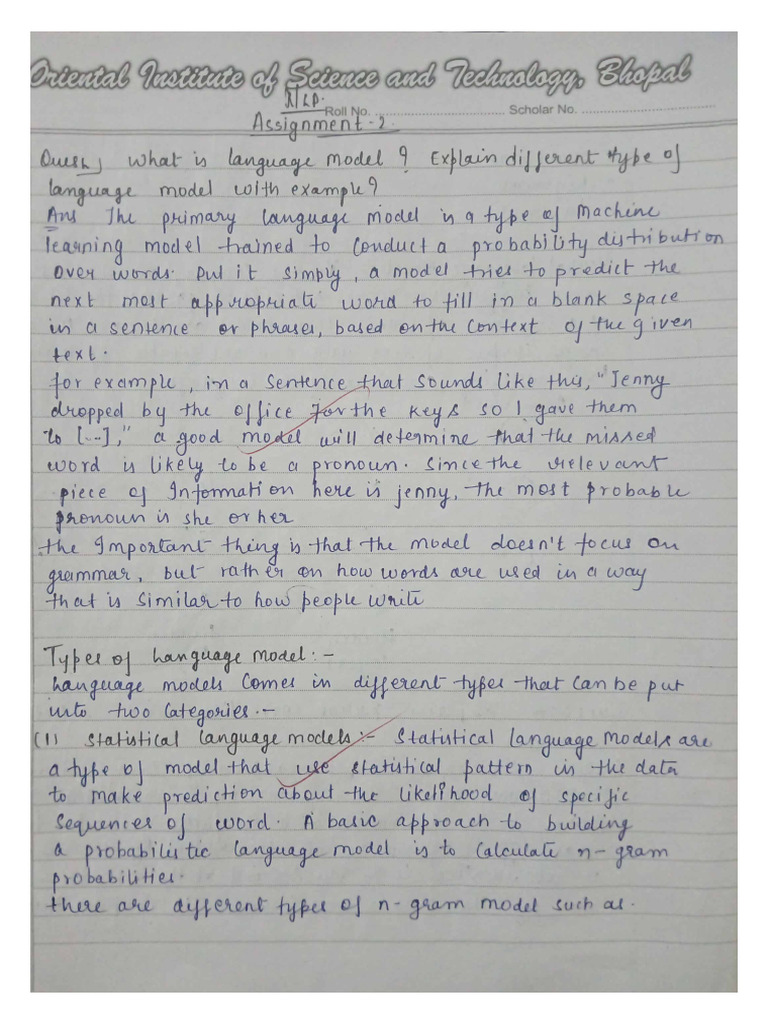 Oriental Institute of Science and Technology, Bhopal
NLP.
Roll No. .................................... Scholar No. ....................................
Assignment-2
Ques1) What is language model? Explain different type of
language model with example?
Ans The primary language model is a type of Machine
learning model trained to conduct a probability distribution
over words. Put it simply, a model tries to predict the
next most appropriate word to fill in a blank space
in a sentence or phrases, based on the context of the given
text.
for example, in a sentence that sounds like this, "Jenny
dropped by the office for the keys so I gave them
to [...]," a good model will determine that the missed
word is likely to be a pronoun. Since the relevant
piece of Information here is jenny, the most probable
pronoun is she or her
the Important thing is that the model doesn't focus on
grammar, but rather on how words are used in a way
that is similar to how people write
Types of Language model:-
Language models comes in different types that can be put
into two categories.-
(1) Statistical language models:- Statistical language models are
a type of model that use statistical pattern in the data
to make prediction about the likelihood of specific
sequences of word. A basic approach to building
a probabilistic language model is to calculate n-gram
probabilities.
there are different types of n-gram model such as.